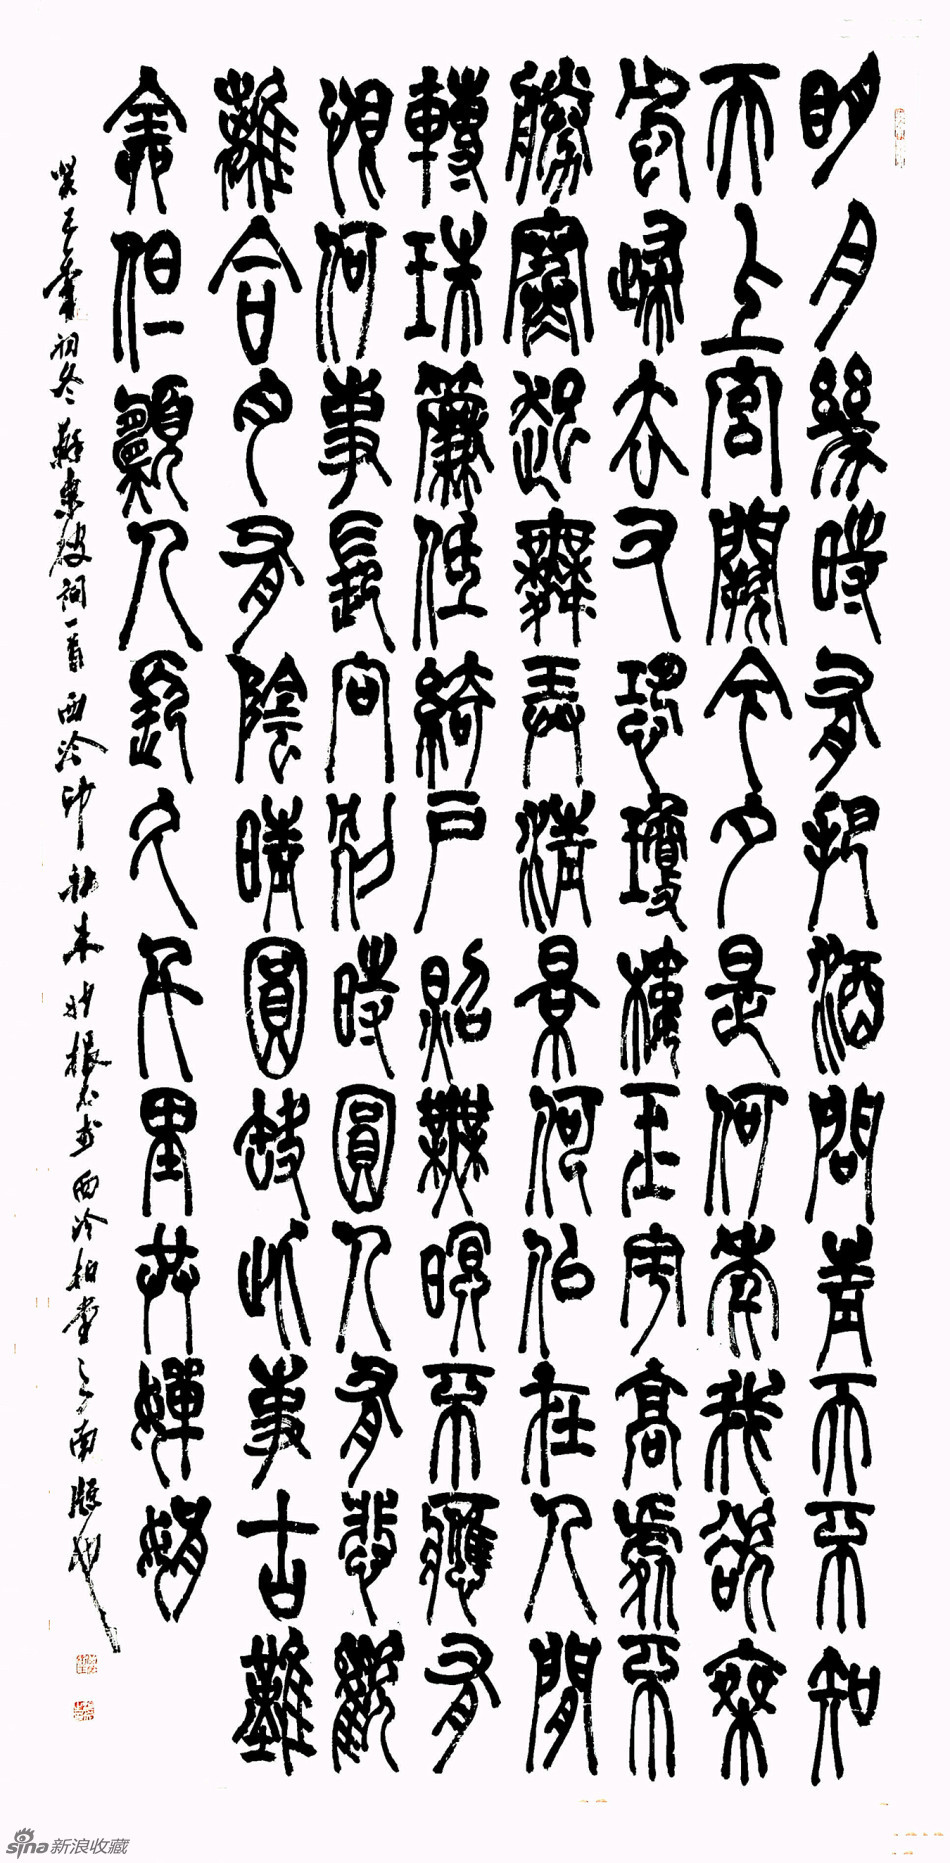 明月幾時有把酒問青天不知
天上宮闕今夕是何年我欲乘
風歸去又恐瓊樓玉宇高處不
勝寒起舞弄清景何佀在人間
轉珠簾低綺戶照無瞑不應有
恨何事長向別時圓人有悲歡
離合月有陰晴圓缺此事古難
全但願人長久千里共嬋娟
癸巳初冬蘇東坡詞一首西泠印社朱妙根書西泠柏堂之南牖也
sina新浪收藏